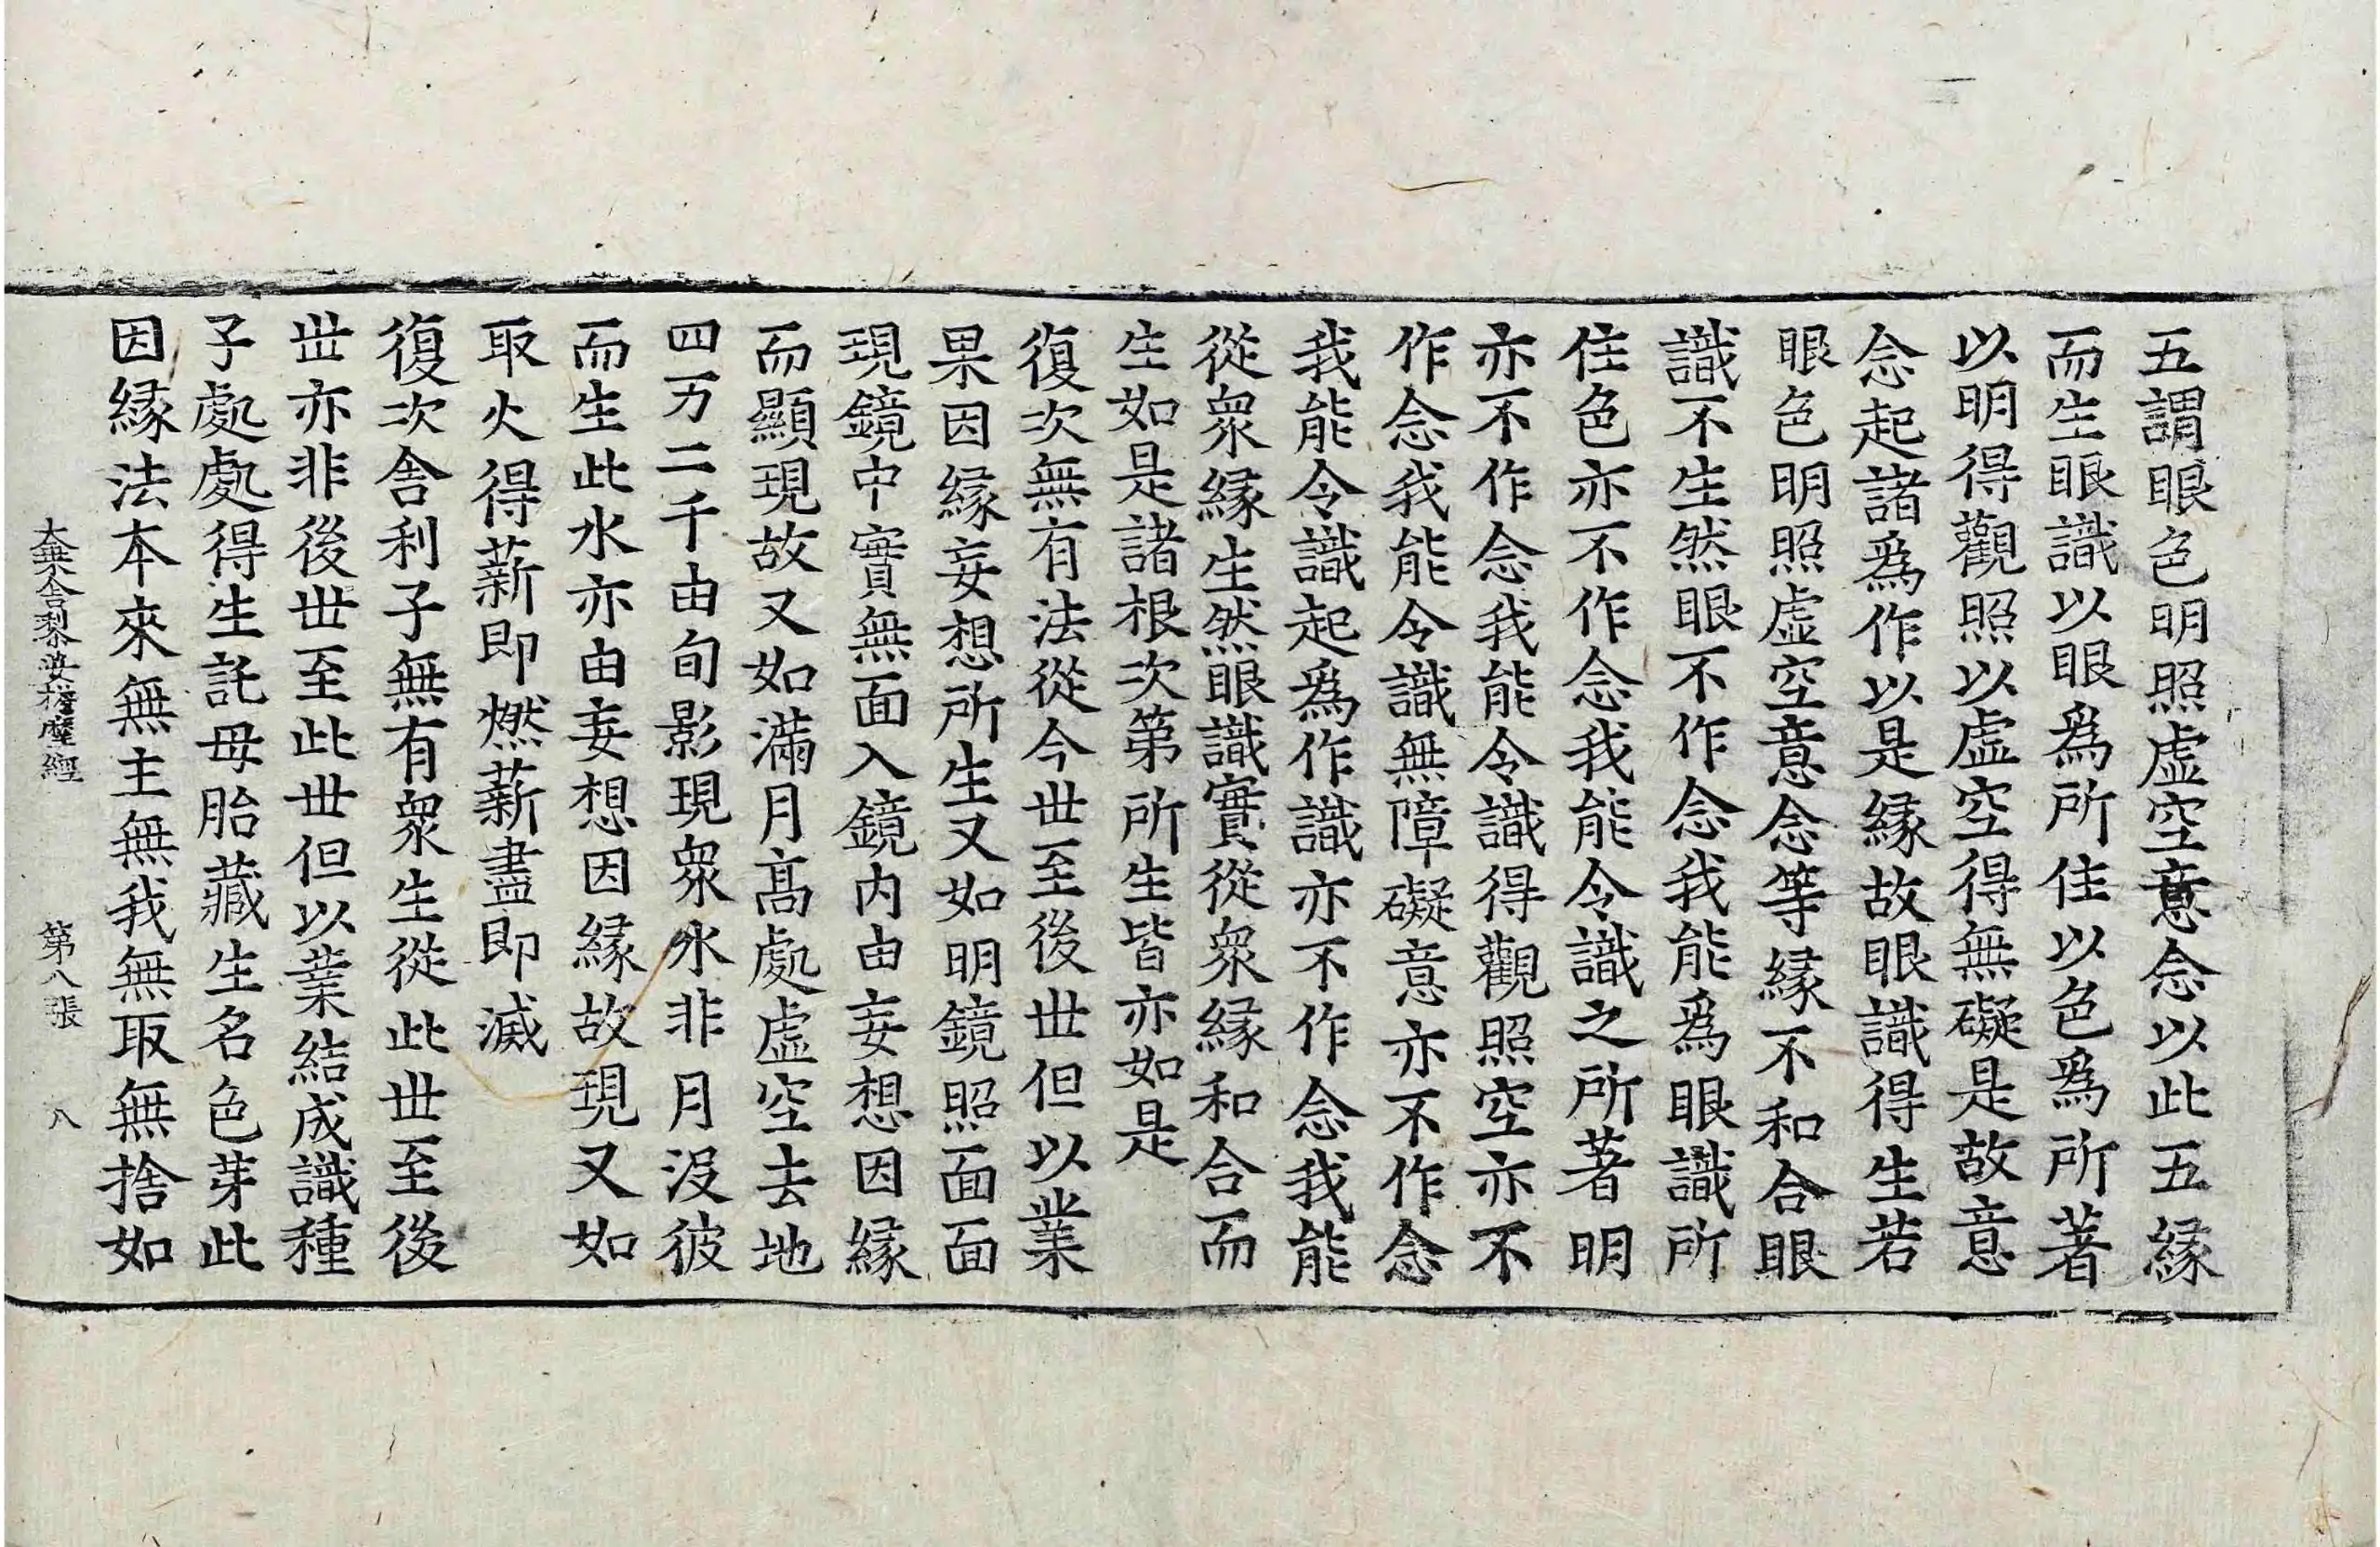 五謂眼色明照虛空意念以此五緣
而生眼識以眼爲所住以色爲所著
以明得觀照以虛空得無礙是故意
念起諸爲作以是緣故眼識得生若
眼色明照虛空意念等緣不和合眼
識不生然眼不作念我能爲眼識所
住色亦不作念我能令識之所著明
亦不作念我能令識得觀照空亦不
作念我能令識無障礙意亦不作念
我能令識起爲作識亦不作念我能
從衆緣生然眼識實從衆緣和合而
生如是諸根次第所生皆亦如是
復次無有法從今世至後世但以業
果因緣妄想所生又如明鏡照面面
現鏡中實無面入鏡內由妄想因緣
而顯現故又如滿月高處虛空去地
四万二千由旬影現衆水非月沒彼
而生此水亦由妄想因緣故現又如
取火得薪即燃薪盡即滅
復次舍利子無有衆生從此世至後
世亦非後世至此世但以業結成識種
子處處得生託母胎藏生名色芽此
因緣法本來無主無我無取無捨如
大乘舍黎娑擔摩經 第八張 八